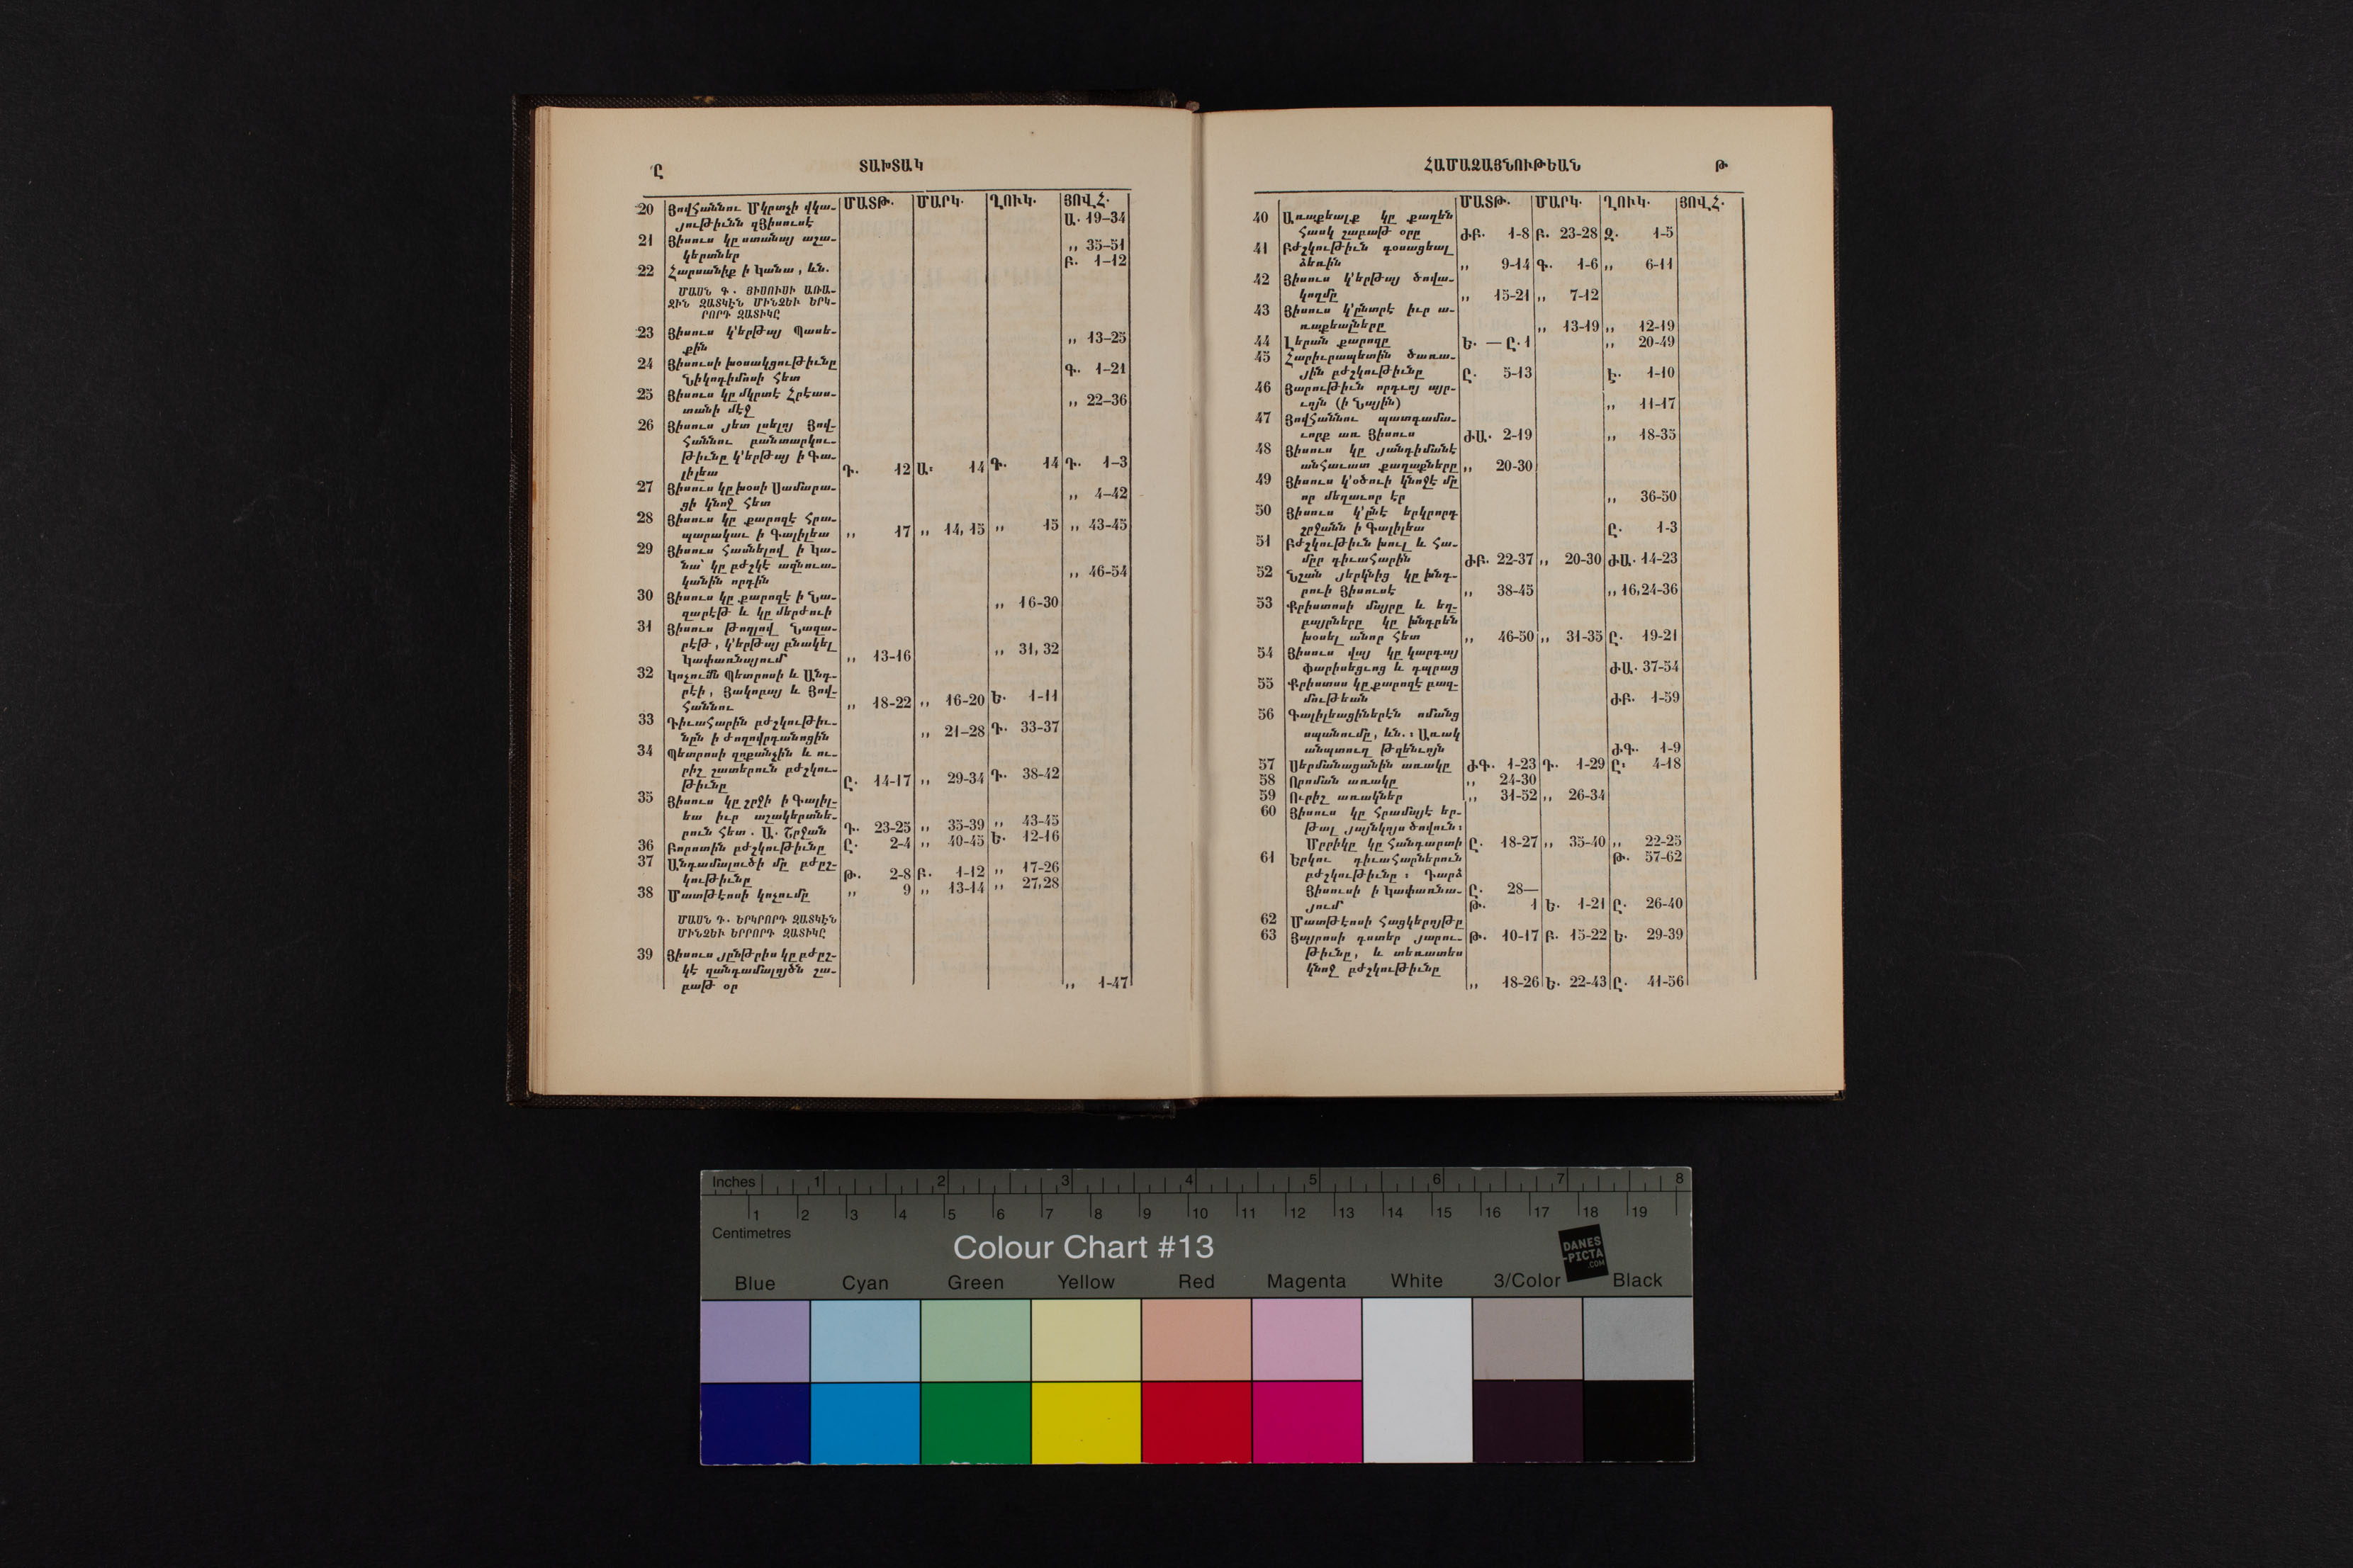 Ը ՏԱԽՏԱԿ
ՄԱՏԹ. ՄԱՐԿ. ՂՈՒԿ. ՅՈՎՀ.
20 Յովհաննու Մկրտչի վկա-
յութիւնն զՅիսուսէ Ա. 19–34
21 Յիսուս կը ստանայ աշա-
կերտներ „ 35–51
22 Հարսանիք ի Կանա, ևն. Բ. 1–12
ՄԱՍՆ Գ. ՅԻՍՈՒՍԻ ԱՌԱ-
ՋԻՆ ԶԱՏԿԷՆ ՄԻՆՉԵՒ ԵՐԿ-
ՐՈՐԴ ԶԱՏԻԿԸ
23 Յիսուս կ'երթայ Պասե-
քին „ 13–25
24 Յիսուսի խօսակցութիւնը
Նիկոդիմոսի հետ Գ. 1–21
25 Յիսուս կը մկրտէ Հրէաս-
տանի մէջ „ 22–36
26 Յիսուս յետ լսելոյ Յով-
հաննու բանտարկու-
թիւնը կ'երթայ ի Գա-
լիլեա Դ. 12 Ա: 14 Դ. 14 Դ. 1–3
27 Յիսուս կը խօսի Սամարա-
ցի կնոջ հետ „ 4–42
28 Յիսուս կը քարոզէ հրա-
պարակաւ ի Գալիլեա „ 17 „ 14, 15 „ 15 „ 43-45
29 Յիսուս հասնելով ի Կա-
նա՝ կը բժշկէ ազնուա-
կանին որդին „ 46-54
30 Յիսուս կը քարոզէ ի Նա-
զարէթ և կը մերժուի „ 16-30
31 Յիսուս թողլով Նազա-
րէթ, կ'երթայ բնակել
Կափառնայում „ 13-16 „ 31, 32
32 Կոչումն Պետրոսի և Անդ-
րէի, Յակոբայ և Յով-
հաննու „ 18-22 „ 16-20 Ե. 1-11
33 Դիւահարին բժշկութիւ-
նըն ի ժողովրդանոցին „ 21–28 Դ. 33-37
34 Պետրոսի զոքանչին և ու-
րիշ շատերուն բժշկու-
թիւնը Ը. 14-17 „ 29-34 Դ. 38-42
35 Յիսուս կը շրջի ի Գալիլ-
եա իւր աշակերտնե-
րուն հետ. Ա. Շրջան Դ. 23-25 „ 35-39 „ 43-45
36 Բորոտին բժշկութիւնը Ը. 2-4 „ 40-45 Ե. 12-16
37 Անդամալուծի մը բժըշ-
կութիւնը Թ. 2-8 Բ. 1-12 „ 17-26
38 Մատթէոսի կոչումը „ 9 „ 13-14 „ 27,28
ՄԱՍՆ Դ. ԵՐԿՐՈՐԴ ԶԱՏԿԷՆ
ՄԻՆՉԵՒ ԵՐՐՈՐԴ ԶԱՏԻԿԸ
39 Յիսուս յընթրիս կը բժըշ-
կէ զանդամալոյծն շա-
բաթ օր „ 1-47
ՀԱՄԱՁԱՅՆՈՒԹԵԱՆ Թ
ՄԱՏԹ. ՄԱՐԿ. ՂՈՒԿ. ՅՈՎՀ.
40 Առաքեալք կը քաղեն
հասկ շաբաթ օրը ԺԲ. 1-8 Բ. 23-28 Զ. 1-5
41 Բժշկութիւն գօսացեալ
ձեռին „ 9-14 Գ. 1-6 „ 6-11
42 Յիսուս կ'երթայ ծովա-
կողմը „ 15-21 „ 7-12
43 Յիսուս կ'ընտրէ իւր ա-
ռաքեալները „ 13-19 „ 12-19
44 Լերան քարոզը Ե. — Ը. 1 „ 20-49
45 Հարիւրապետին ծառա-
յին բժշկութիւնը Ը. 5-13 Է. 1-10
46 Յարութիւն որդւոյ այր-
ւոյն (ի Նային) „ 11-17
47 Յովհաննու պատգամա-
ւորք առ Յիսուս ԺԱ. 2-19 „ 18-35
48 Յիսուս կը յանդիմանէ
անհաւատ քաղաքները „ 20-30
49 Յիսուս կ'օծուի կնոջէ մը
որ մեղաւոր էր „ 36-50
50 Յիսուս կ'ընէ երկրորդ
շրջանն ի Գալիլեա Ը. 1-3
51 Բժշկութիւն խուլ և հա-
մըր դիւահարին ԺԲ. 22-37 „ 20-30 ԺԱ. 14-23
52 Նշան յերկնից կը խնդ-
րուի Յիսուսէ „ 38-45 „ 16,24-36
53 Քրիստոսի մայրը և եղ-
բայրները կը խնդրեն
խօսել անոր հետ „ 46-50 „ 31-35 Ը. 19-21
54 Յիսուս վայ կը կարդայ
փարիսեցւոց և դպրաց ԺԱ. 37-54
55 Քրիստոս կը քարոզէ բազ-
մութեան ԺԲ. 1-59
56 Գալիլեացիներէն ոմանց
սպանումը, ևն.: Առակ
անպտուղ թզենւոյն ԺԳ. 1-9
57 Սերմանացանին առակը ԺԳ. 1-23 Դ. 1-29 Ը: 4-18
58 Որոման առակը „ 24-30
59 Ուրիշ առակներ „ 31-52 „ 26-34
60 Յիսուս կը հրամայէ եր-
թալ յայնկոյս ծովուն:
Մրրիկը կը հանդարտի Ը. 18-27 „ 35-40 „ 22-25
61 Երկու դիւահարներուն Թ. 57-62
բժշկութիւնը: Դարձ
Յիսուսի ի Կափառնա- Ը. 28—
յում Թ. 1 Ե. 1-21 Ը. 26-40
62 Մատթէոսի հացկերոյթը
63 Յայրոսի դստեր յարու- Թ. 10-17 Բ. 15-22 Ե. 29-39
թիւնը, և տեռատես
կնոջ բժշկութիւնը
„ 18-26 Ե. 22-43 Ը. 41-56
Inches 1 2 3 4 5 6 7 8
1 2 3 4 5 6 7 8 9 10 11 12 13 14 15 16 17 18 19
Centimetres
Colour Chart #13
DANES
-PICTA
.COM
Blue Cyan Green Yellow Red Magenta White 3/Color Black